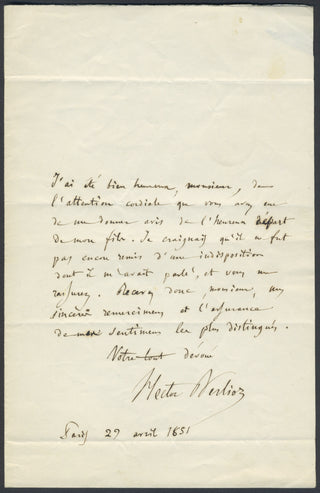 J'ai été bien heureux, monsieur, de
l'attention cordiale que vous avez eue
de me donner avis de l'heureux départ
de mon fils. Je craignais qu'il ne fut
pas encore remis d'une indisposition
dont il m'avait parlé, et vous me
rassurez. Recevez donc, monsieur, mes
sincères remerciments et l'assurance
de mes sentimens les plus distingués.
Votre tout dévoué
Hector Berlioz
Paris 29 avril 1851